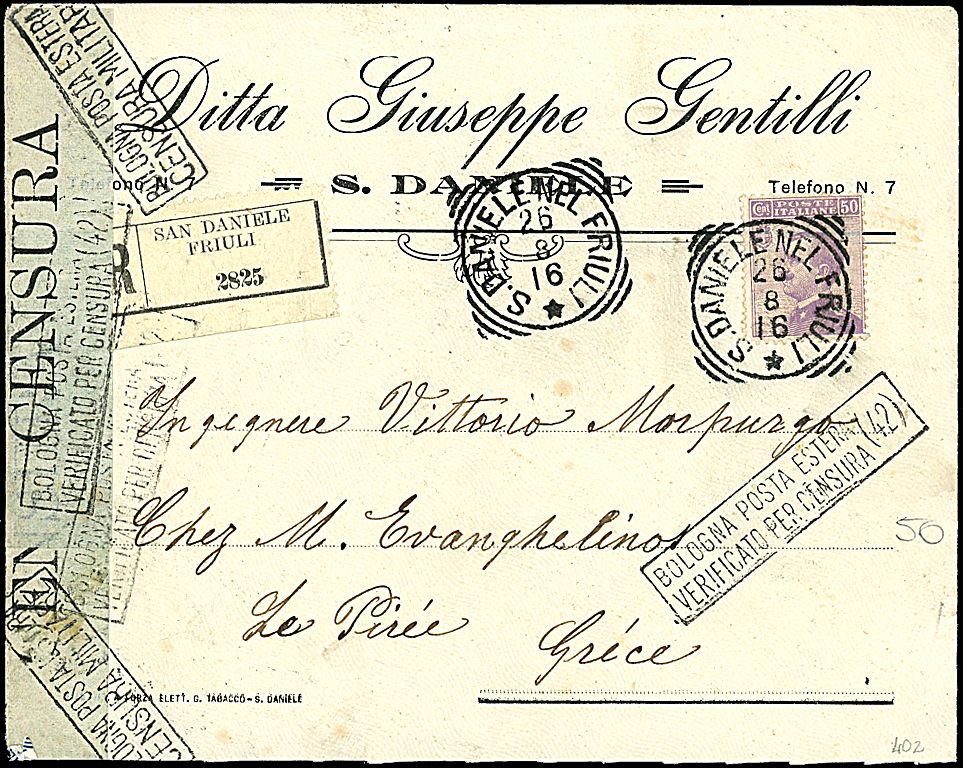 Ditta Giuseppe Gentilli
S. DANIELE
Telefono N. 7
POSTE ITALIANE
Cent 50
R
SAN DANIELE
FRIULI
2825
S. DANIELE NEL FRIULI
26
8
16
S. DANIELE NEL FRIULI
26
8
16
CENSURA
CEN
BOLOGNA POSTA ESTERA
CENSURA MILITAR
BOLOGNA POSTA ESTERA
VERIFICATO PER CENSURA (42)
Ingegnere Vittorio Morpurgo
Chez M. Evanghelinos
Le Pirée
Gréce
BOLOGNA POSTA ESTERA
VERIFICATO PER CENSURA (42)
50
BOLOGNA POSTA
VERIFICATO PER CENSURA
OLOGNA POSTA ESTERA
CENSURA MILITAR
FORZA ELETT. G. TABACCO - S. DANIELE
402